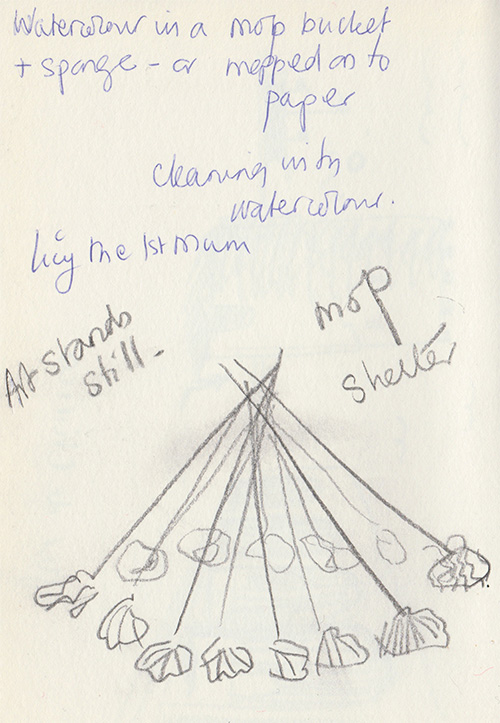 Watercolour in a mop bucket
+ sponge - or mopped on to
paper
cleaning with
watercolour.
the 1st mum
Art stands
still.
mop
shelter